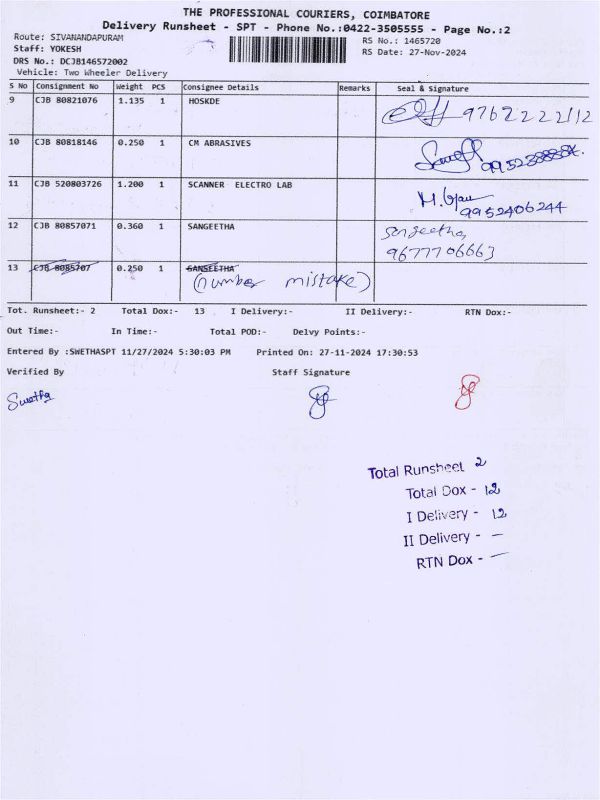 THE PROFESSIONAL COURIERS, COIMBATORE
Delivery Runsheet - SPT - Phone No.:0422-3505555 - Page No.:2
Route: SIVANANDAPURAM RS No.: 1465720
Staff: YOKESH RS Date: 27-Nov-2024
DRS No.: DCJB146572002
Vehicle: Two Wheeler Delivery
S No Consignment No Weight PCS Consignee Details Remarks Seal & Signature
9 CJB 80821076 1.135 1 HOSKDE 9762222112
10 CJB 80818146 0.250 1 CM ABRASIVES
11 CJB 520803726 1.200 1 SCANNER ELECTRO LAB
9952406244
12 CJB 80857071 0.360 1 SANGEETHA Sangeetha,
9677706663
13 CJB 8085707 0.250 1 GANSEETHA
(number mistake)
Tot. Runsheet:- 2 Total Dox:- 13 I Delivery:- II Delivery:- RTN Dox:-
Out Time:- In Time:- Total POD:- Delvy Points:-
Entered By :SWETHASPT 11/27/2024 5:30:03 PM Printed On: 27-11-2024 17:30:53
Verified By Staff Signature
Swetha
Total Runsheet 2
Total Dox - 12
I Delivery - 12
II Delivery - —
RTN Dox - —